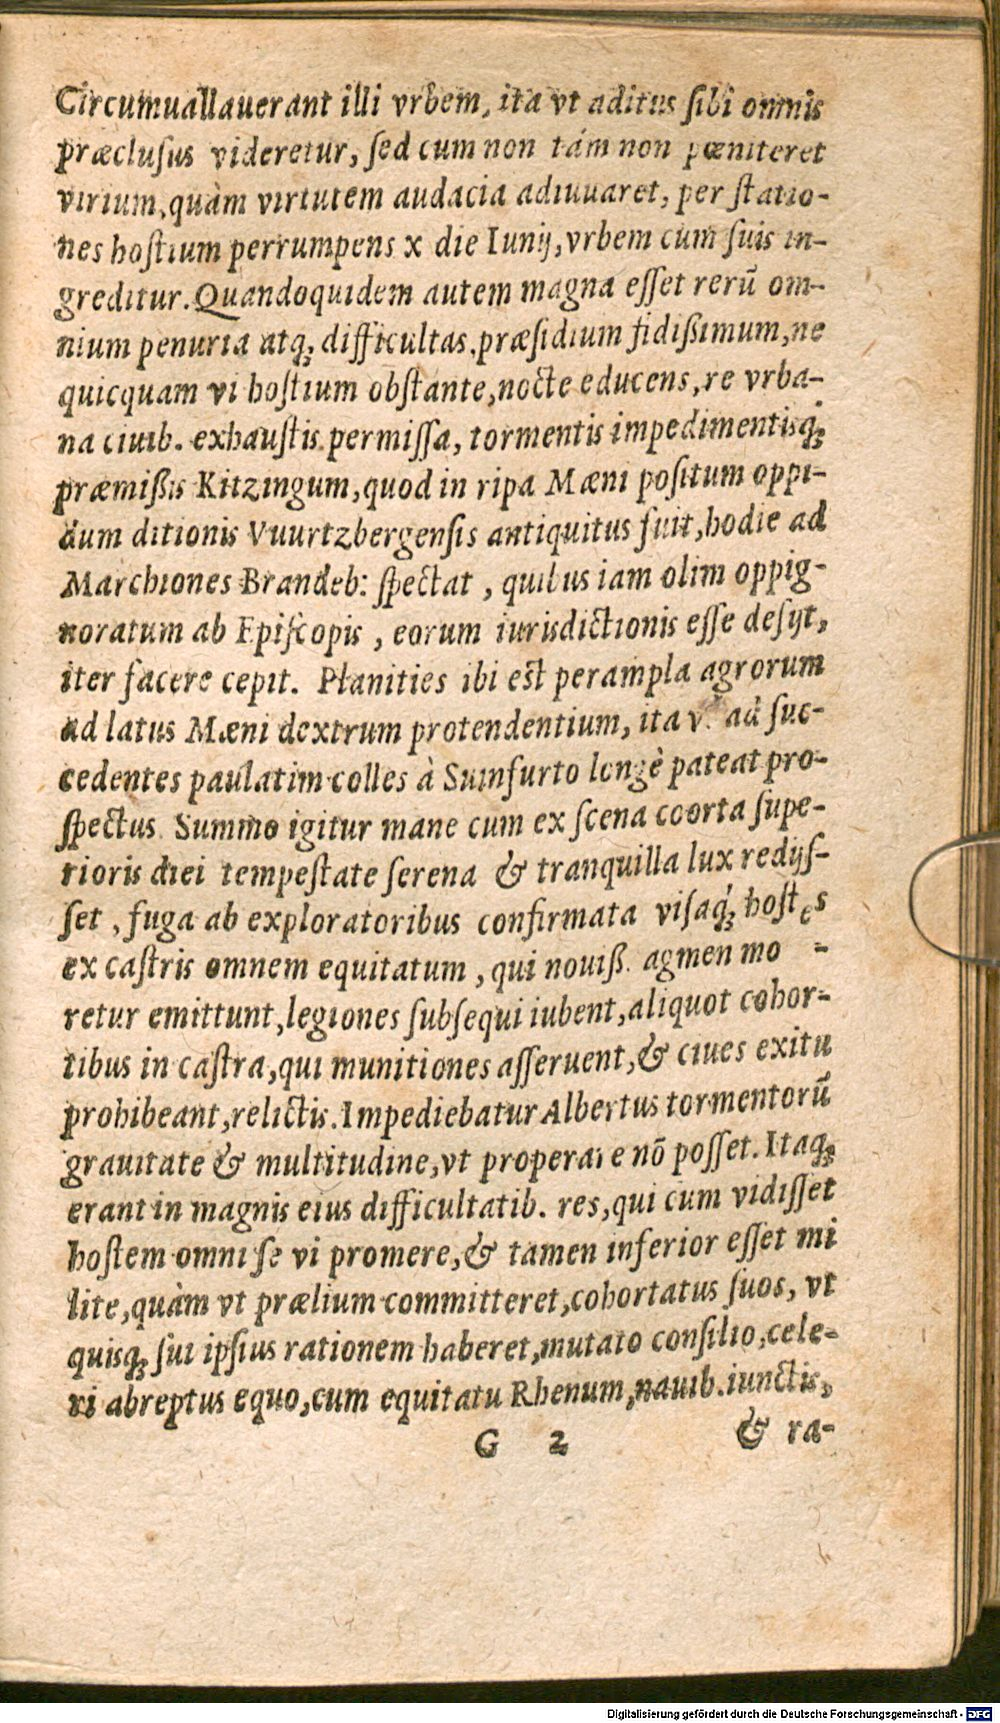 Circumuallauerant illi vrbem, ita vt aditus ſibi omnis
præcluſus videretur, ſed cum non tám non pœniteret
virium, quàm virtutem audacia adiuuaret, per ſtatio-
nes hoſtium perrumpens x die Iunij, vrbem cum ſuis in-
greditur. Quandoquidem autem magna eſſet rerū om-
nium penuria atq; difficultas, præſidium fidißimum, ne
quicquam vi hoſtium obſtante, nocte educens, re vrba-
na ciuib. exhauſtis permiſſa, tormentis impedimentisq;
præmißis Kitzingum, quod in ripa Mæni poſitum oppi-
dum ditionis VVurtzbergenſis antiquitus fuit, hodie ad
Marchiones Brandeb: ſpectat, quibus iam olim oppig-
noratum ab Epiſcopis, eorum iurisdictionis eſſe deſijt,
iter facere cepit. Planities ibi eſt perampla agrorum
ad latus Mæni dextrum protendentium, ita v. ad ſuc-
cedentes paulatim colles à Suinfurto longè pateat pro-
ſpectus. Summo igitur mane cum ex ſcena coorta ſupe-
rioris diei tempeſtate ſerena & tranquilla lux redijſ-
ſet, fuga ab exploratoribus confirmata viſaq́; hoſtes
ex caſtris omnem equitatum, qui nouiß. agmen mo =
retur emittunt, legiones ſubſequi iubent, aliquot cohor-
tibus in caſtra, qui munitiones aſſeruent, & ciues exitu
prohibeant, relictis. Impediebatur Albertus tormentorū
grauitate & multitudine, vt properare nō poſſet. Itaq;
erant in magnis eius difficultatib. res, qui cum vidiſſet
hoſtem omni ſe vi promere, & tamen inferior eſſet mi
lite, quàm vt prælium committeret, cohortatus ſuos, vt
quisq; ſui ipſius rationem haberet, mutato conſilio, cele-
ri abreptus equo, cum equitatu Rhenum, nauib. iunctis,
G 2 & ra-
Digitalisierung gefördert durch die Deutsche Forschungsgemeinschaft - DFG